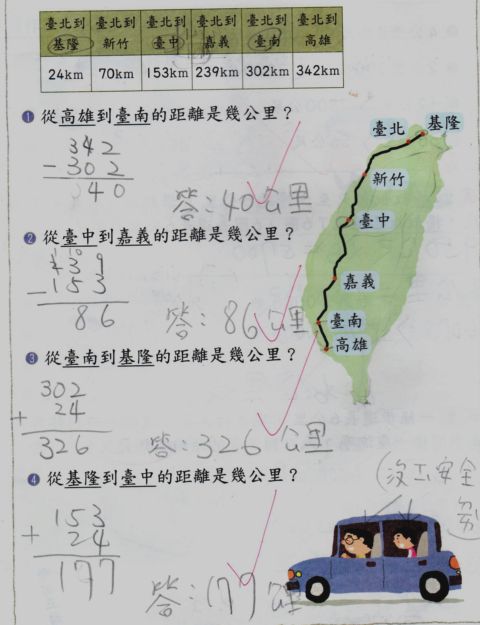 臺北到 臺北到 臺北到 臺北到 臺北到 臺北到
基隆 新竹 臺中 嘉義 臺南 高雄
24km 70km 153km 239km 302km 342km
❶ 從高雄到臺南的距離是幾公里？
342
－302
040
答：40公里
❷ 從臺中到嘉義的距離是幾公里？
239
－153
86
答：86公里
❸ 從臺南到基隆的距離是幾公里？
302
＋24
326
答：326公里
❹ 從基隆到臺中的距離是幾公里？
153
＋24
177
答：177公里
臺北
基隆
新竹
臺中
嘉義
臺南
高雄
安全